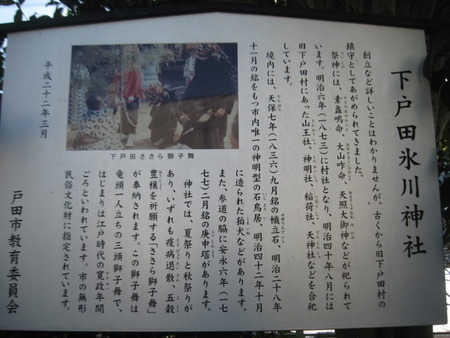 下戸田氷川神社
創立など詳しいことはわかりませんが、古くから旧下戸田村の
鎮守としてあがめられてきました。
祭神には、素盞嗚命、大山咋命、天照大御神などが祀られて
います。明治六年(一八七三)に村社となり、明治四十年八月には
旧下戸田村にあった山王社、神明社、稲荷社、天神社などを合祀
しています。
境内には、天保七年(一八三六)九月銘の幟立石、明治二十八年
十一月の銘をもつ市内唯一の神明型の石鳥居、明治四十二年十月
に造られた狛犬などがあります。
また、参道の脇に安永六年(一七
七七)二月銘の庚申塔があります。
神社では、夏祭りと秋祭りが
あり、いずれも疫病退散、五穀
豊穣を祈願する「ささら獅子舞」
が奉納されます。この獅子舞は
竜頭一人立ちの三頭獅子舞で、
はじまりは江戸時代の寛政年間
ごろといわれています。市の無形
民俗文化財に指定されています。
下戸田ささら獅子舞
平成二十二年三月
戸田市教育委員会